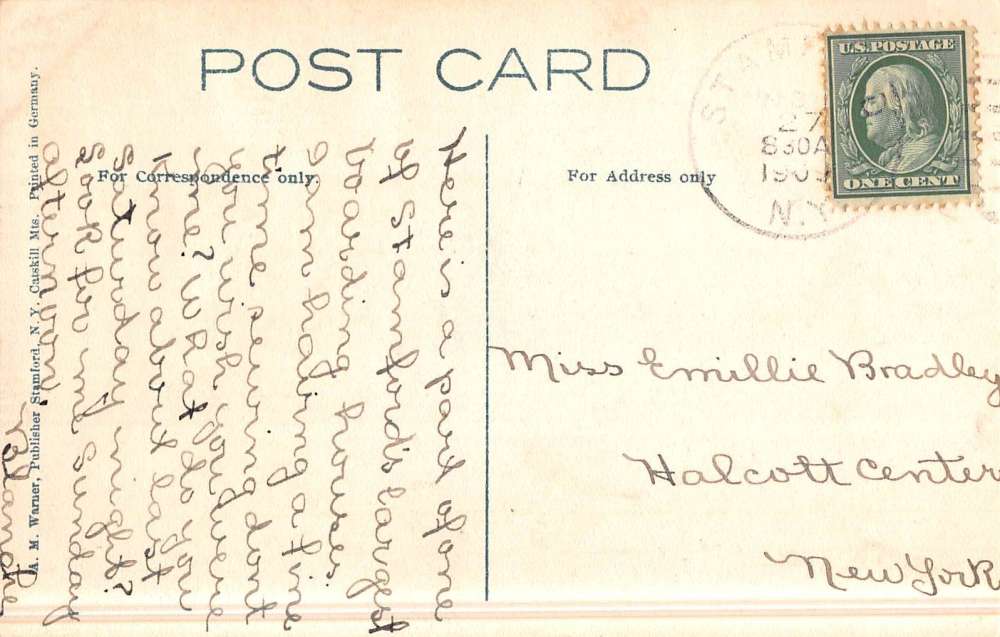 POST CARD
For Correspondence only.
For Address only
U.S. POSTAGE
ONE CENT
STAM
27
830A
1909
N.Y.
Here is a part of one
of Stamford's largest
boarding houses.
I'm having a fine
time sewing dont
you wish you were
me? What do you
know about last
Saturday night?
Look for me Sunday
afternoon.
Blanche
Miss Emillie Bradley
Halcott Center
New York
A. M. Warner, Publisher Stamford, N. Y. Catskill Mts. Printed in Germany.